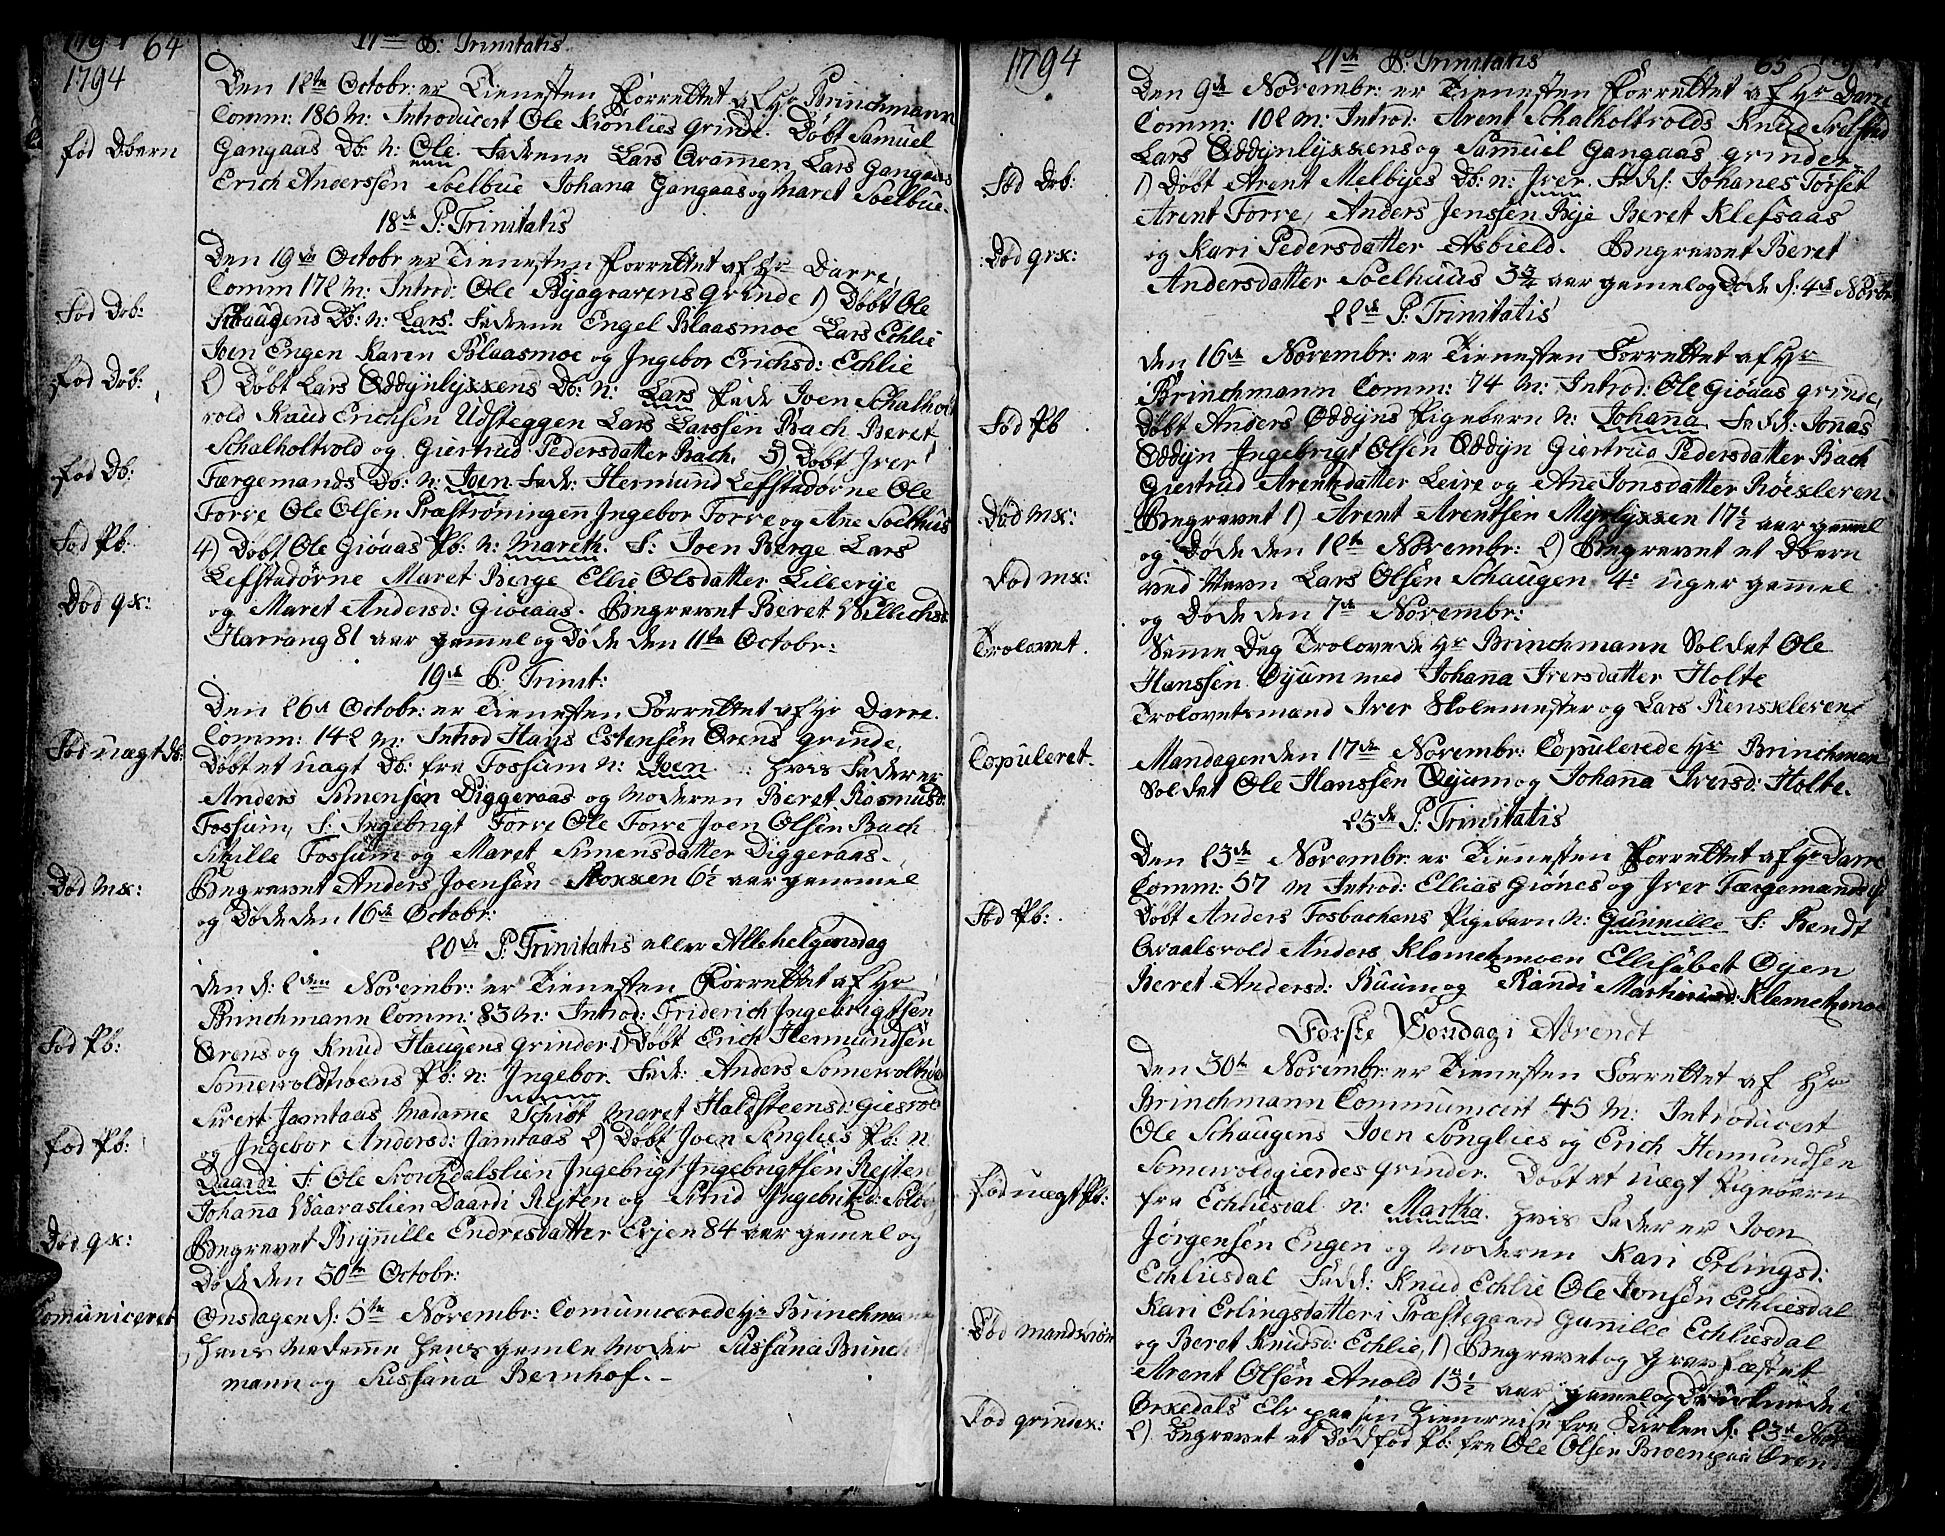 64
1794
17de P: Trinitatis
Den 12te Octobr: er Tienesten Forrettet af Hr Brinchmann
Comm: 186 M: Introducert Ole Kiønlies grinde. Døbt Samuel
fød Dbern
Gangaas Db: n: Ole. Faderene Lars Gangaas
Erich Anderssen Soelbue Johana Gangaas og Maret Soelbue.
18de P: Trinitatis
Den 19de Octobr er Tienesten Forrettet af Hr Darre,
Comm 172 M: Introd: Ole Byagrarens grinde 1) Døbt Ole
fød Drb:
Schaugens Db: n: Lars. Faderene Engel Blaasmoe Lars Echlie
Joen Engen Karen Blaasmoe og Ingebor Erichsd: Echlie
fød Drb:
2) Døbt Lars Oddÿnlÿkkens Db: n: Lars Fadr Joen Schalholt
vold Knud Erichsen Udsteggen Lars Larssen Bach Beret
Schalholtvold og Giertrud Pedersdatter Bach. 3) Døbt Iver
fød Db:
Færgemands Db: n: Joen Fad: Hermund Lefstadørne Ole
Forre Ole Olsen Præstrøningen Ingebor Forre og Ane Soelhus
fød Pb:
4) Døbt Ole Giøaas Pb: n: Mareth. F: Joen Berge Lars
Lefstadørne Maret Berge Ellie Olsdatter Lillerye
Død qk:
og Maret Andersd: Giøeaas. Begravet Beret Willichsd:
Harrang 81 aar gammel og Døde den 11te Octobr:
19de P: Trinit:
Den 26de Octobr: er Tienesten Forrettet af Hr Darre.
Comm: 142 M: Introd Hans Estensen Ørens grinde,
fød uægt Db:
Døbt et uægt Db: fra Fossum n: Joen. hvis Fader er
Anders Simensen Diggeraas og Moderen Beret Rasmusd:
Fossum, F: Ingebrigt Forre Ole Forre Joen Olsen Bach
Sitzille Fossum og Maret Simensdatter Diggeraas.
Død mk:
Begravet Anders Joensen Mokken 6½ aar gammel
og Døde den 16de Octobr:
20de P: Trinitatis eller Allehelgensdag
den d: 2den Novembr: er Tienesten Forrettet af Hr
Brinchmann Comm: 83 M: Introd: Friderich Ingebrigtsen
Ørens og Knud Haugens grinder 1) Døbt Erich Hermundsen
fød Pb:
Somervoldmoens Pb: n: Ingebor. Fad: Anders Somervoldmo
Sivert Jamtaas Madame Schiøt Maret Haldsteensd: Giesvold
og Ingebor Andersd: Jamtaas 2) Døbt Joen Songlies Pb: n:
fød Pb:
Daardi F: Ole Storchdalslien Ingebrigt Ingebrigtsen Rejten
Johana Waaraslien Daardi Rejten og Sirid Ingebritzd:
Død qk:
Begravet Bignille Endresdatter Evjen 84 aar gamel og
Døde den 30te Octobr:
Comuniceret
Onsdagen d: 5te Novembr: Comunicerede Hr Brinchmann
hans Madamme hans gamle Moder Sussana Brinch
mann og Sussana Bernhof.
1794
65
21de P: Trinitatis
Den 9de Novembr: er Tienesten Forrettet af Hr Darre
Comm: 102 M: Introd: Arent Schalholtvolds Knud Selstad
Lars Oddÿnlÿkkens og Samuel Gangaas grinder
fød Drb:
1) Døbt Arent Melbÿes Db: n: Iver. Fadd: Johanes Torset
Arent Forre, Anders Jenssen Beje Beret Klefsaas
Død qrk:
og Kari Pedersdatter Asbield. Begravet Beret
Andersdatter Soelhuus 3¾ aar gamel og Døde d: 4de Novbr
22de P: Trinitatis
den 16de Novembr: er Tienesten Forrettet af Hr
Brinchmann Comm: 74 M: Introd: Ole Giøaas grinde,
fød Pb
Døbt Anders Oddÿns Pigebarn n: Johanna Fadd: Jonas
Oddÿn Ingebrigt Olsen Oddÿn Giertrud Pedersdatter Bach
Giertrud Arentzdatter Leire og Ane Jonsdatter Røekleren.
Død mk:
Begravet 1) Arent Arentsen Myrlykken 17½ aar gamel
og Døde den 12te Novembr: 2) Begravet et Dbern
Død mk:
ved Navn Lars Olsen Schaugen 4: uger gamel
og Døde den 7de Novembr:
Trolovet.
Samme Dag Trolovede Hr Brinchmann Soldat Ole
Hanssen Oÿum med Johanna Iversdatter Holte
Trolovetsmænd Iver Skolemester og Lars Renskleren
Copuleret.
Mandagen den 17de Novembr: Copulerede Hr Brinchmann
Soldat Ole Hanssen Oÿum og Johanna Iversd: Holte.
23de P: Trinitatis
Den 23de Novembr: er Tienesten Forrettet af Hr Darre
Comm: 57 M Introd: Ellias Giønes og Iver Færgemands
fød Pb:
Døbt Anders Fosbachens Pigebarn n: Gunnille F: Bendt
Qvaalsvold Anders Klemetzmoen Ellisabet Oyen
Beret Andersd: Ruum og Randi Martinusd: Klemetzmoe
Første Søndag i Advendt
Den 30te Novembr: er Tienesten Forrettet af Hr
Brinchmann Communicert 45 M: Introducert
Ole Schaugens Joen Songlies og Erich Hermundsen
Somervoldgierdes grinder. Døbt et uægt Pigebarn
fød uægt Pb:
fra Echliesdal n: Martha. hvis Fader er Joen
Jørgensen Engen og Moderen Kari Erlingsd:
Echliesdal Fadd: Knud Echlie Ole Jonsen Echliesdal
Kari Erlingsdatter i Præstegaard Gunille Echliesdal
Død mandskiøn
og Beret Knudsd: Echlie, 1) Begravet og gravfæstet
Arent Olsen Anold 13½ aar gamel og Druknede i
Ørkedals Elv paa sin Hiemreise fra Kirken d: 23de Novbr
Død grindek:
2) Begravet et Dødfød Pb: fra Ole Olsen Broen paa Øren